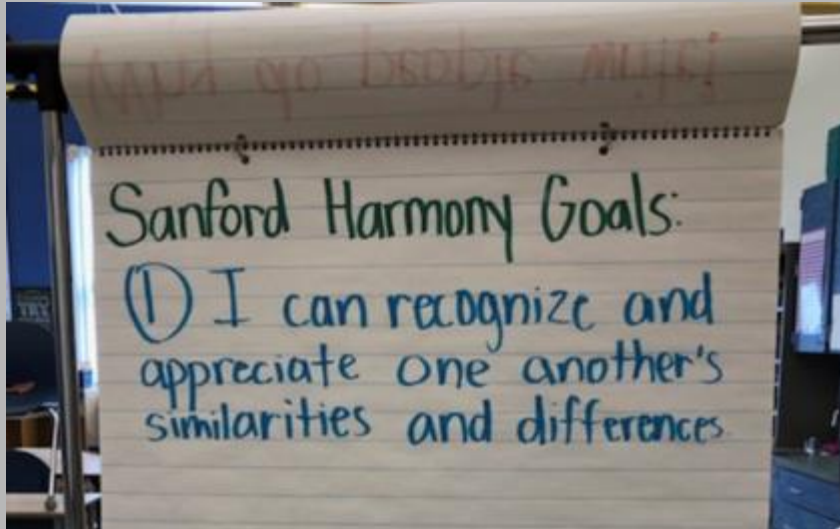 Sanford Harmony Goals:
① I can recognize and
appreciate one another's
similarities and differences